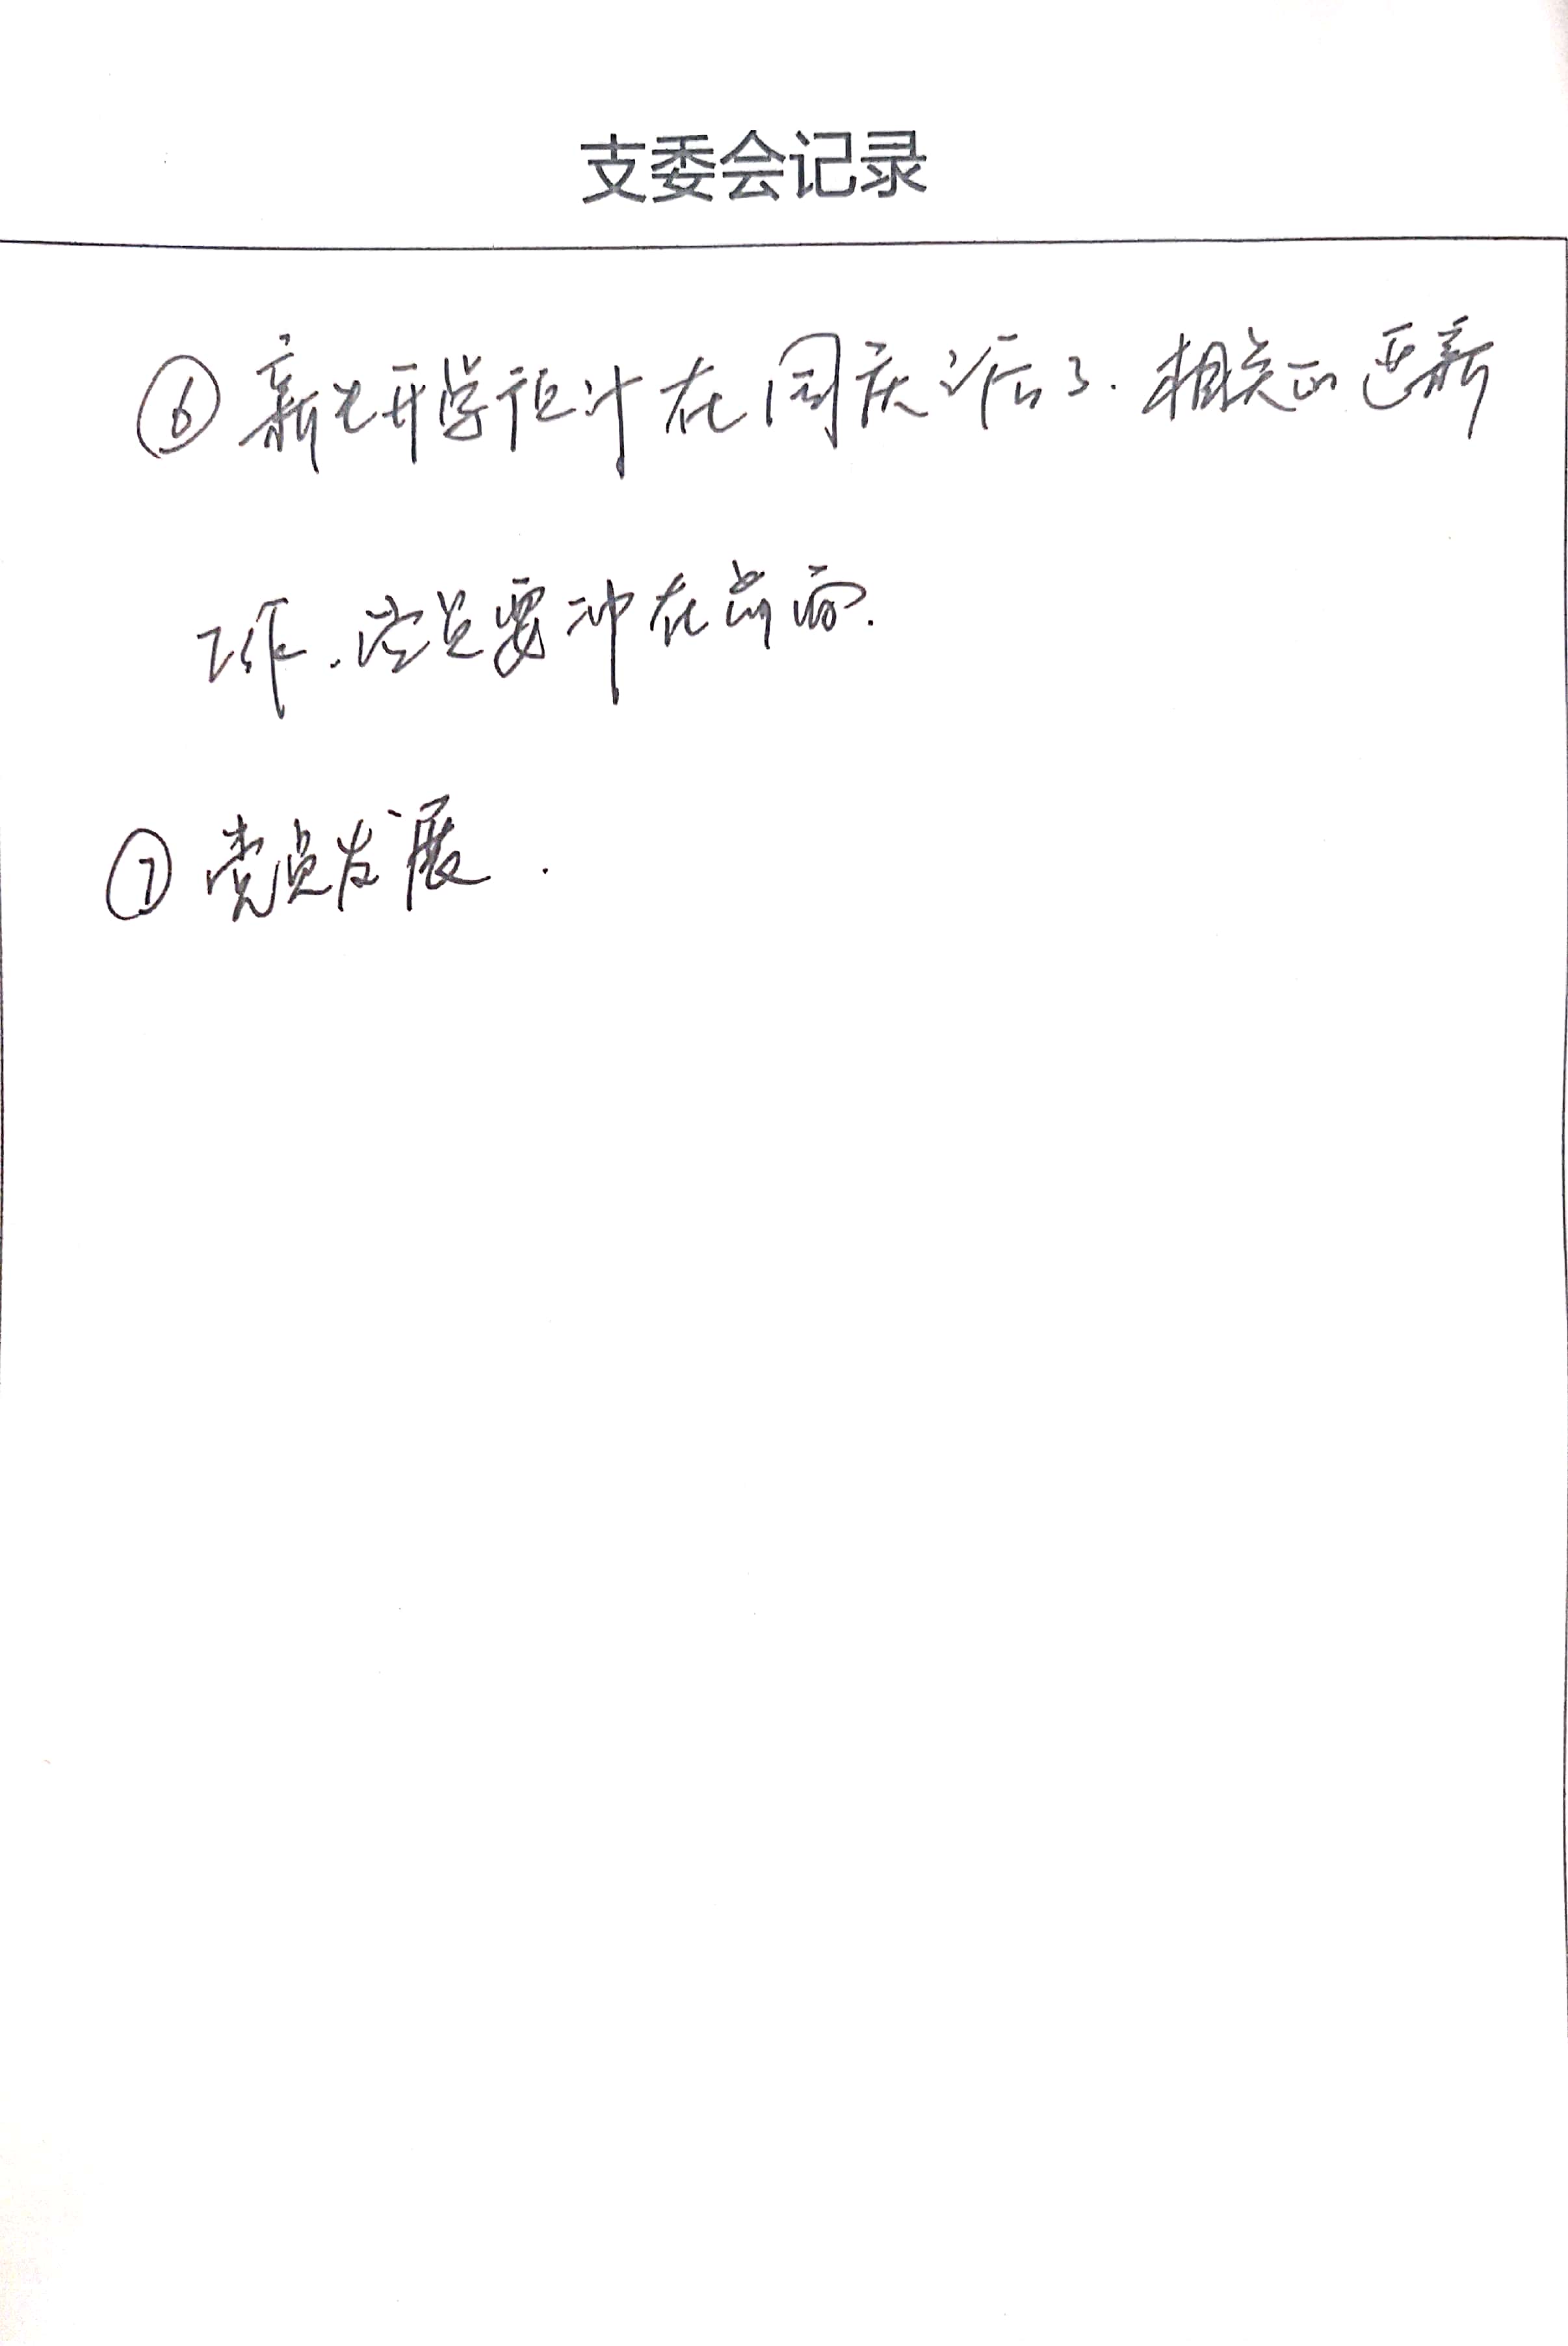 支委会记录
⑥ 新生开学估计在国庆之后了.相关的迎新
工作.党员要冲在前面.
⑦ 党员发展.